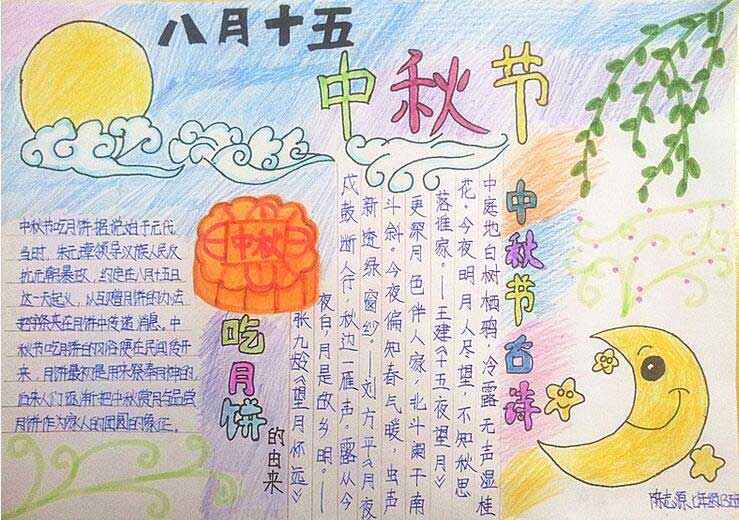 八月十五
中秋节
中秋节吃月饼据说始于元代，
当时，朱元璋领导汉族人民反
抗元朝暴政，约定在八月十五日
这一天起义，以互赠月饼的办法
把字条夹在月饼中传递消息。中
秋节吃月饼的习俗便在民间传开
来，月饼最初是用来祭奉月神的
后来人们逐渐把中秋赏月与品尝
月饼作为家人的团圆的象征。
中秋
吃月饼
的由来
中秋节古诗
中庭地白树栖鸦，冷露无声湿桂
花。今夜明月人尽望，不知秋思
落谁家。——王建《十五夜望月》
更深月色伴人家，北斗阑干南
斗斜。今夜偏知春气暖，虫声
新透绿窗纱。——刘方平《月夜
戍鼓断人行，秋边一雁声。露从今
夜白，月是故乡明。——
张九龄《望月怀远》
陈志源